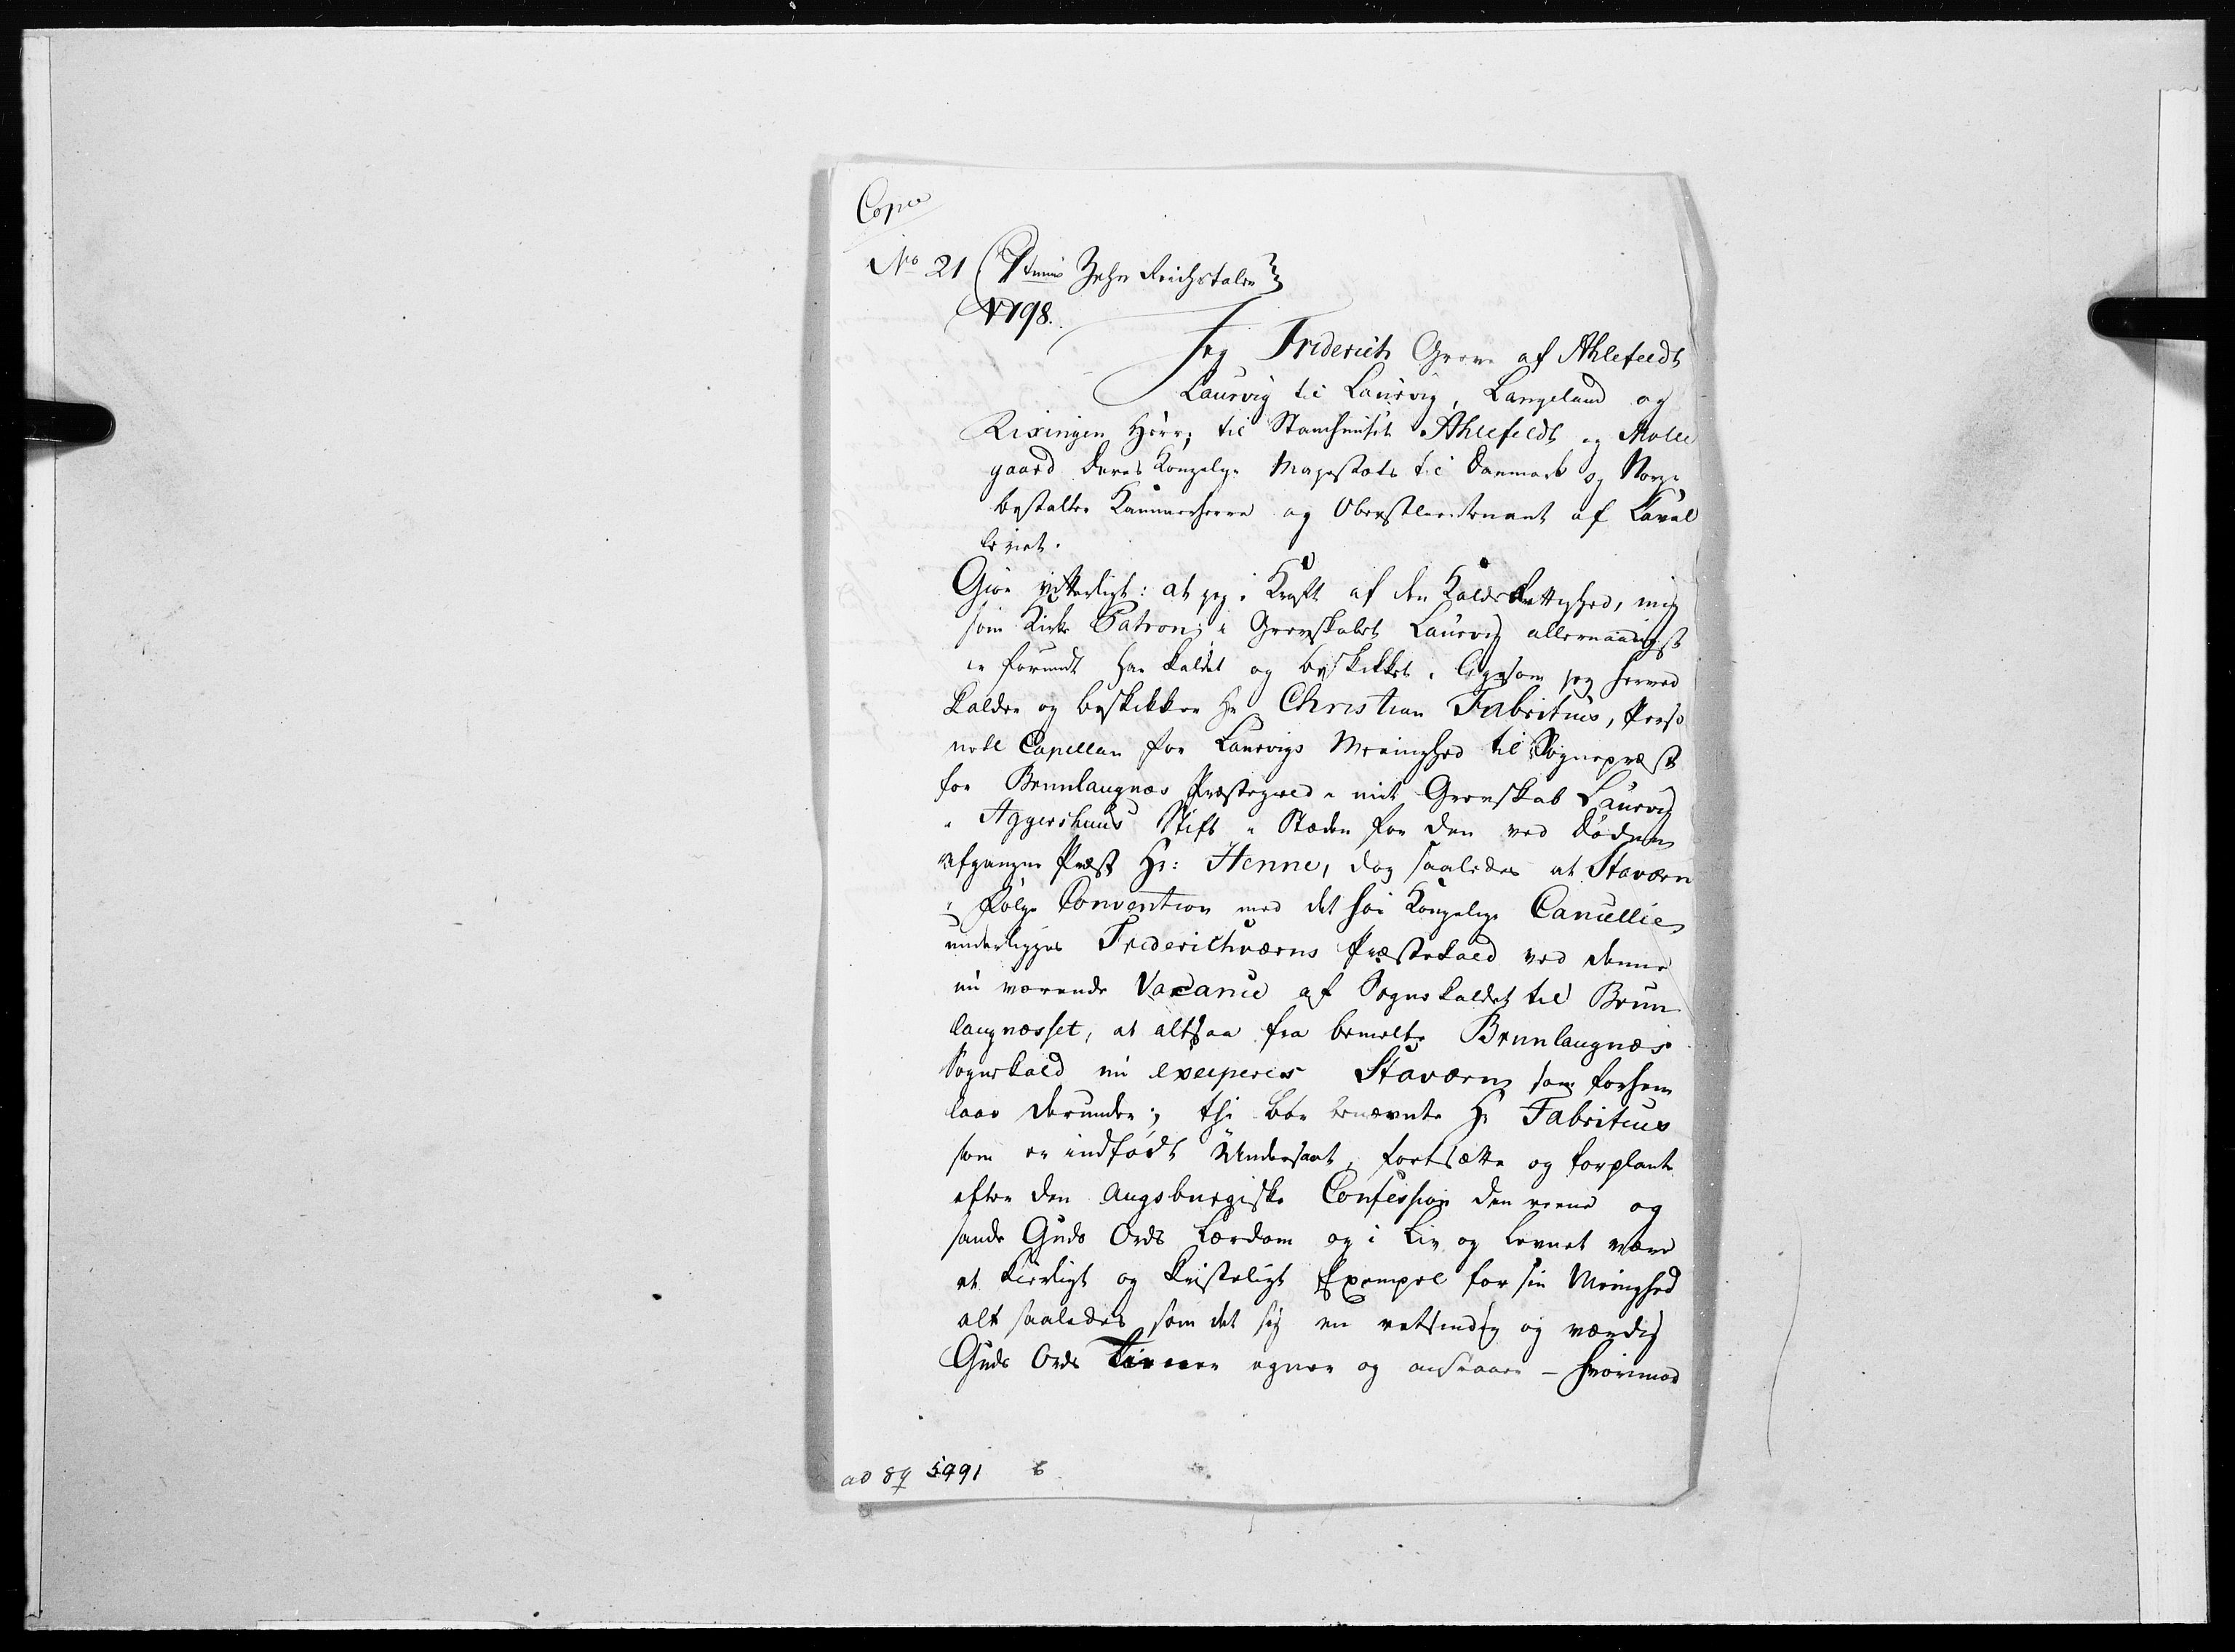 Copia
No 21 Zehn Reichstaler
1798.
Jeg Friderich Greve af Ahlefeldt
Laurvig til Laurvig, Langeland og
Rixingen Herr, til Stamhuset Ahlefeldt og Mølle
gaard Deres Kongelige Majestæts til Danmark og Norge
bestalter Kammerherre og Oberstlieutenant af Caval
leriet.
Giør vitterligt: at jeg i Kraft af den Kaldsrettighed, mig
som Kirke Patron i Grevskabet Laurvig allernaadigst
er forundt har kaldet og beskikket, ligesom jeg herved
kalder og beskikker Hr Christian Fabritius, Perso
nell Capellan for Laurvigs Menighed til Sognepræst
for Brunlaugnæs Præstegield i mit Grevskab Laurvig
i Aggershuus Stift i Stæden for den ved Døden
afgangne Præst Hr: Henne, dog saaledes at Staværn
i Følge Convention med det høi Kongelige Cancellie
underlægges Friderichsværns Præstekald ved denne
nu værende Vacance af Sognekaldet til Brun
laugnæsset, at altsaa fra bemelte Brunlaugnæs
Sognekald nu exciperes Staværn som forhen
laae derunder; thi bør benævnte Hr Fabritius
som er indfødt Undersaat, fortsætte og forplante
efter den Augsburgiske Confession den reene og
sande Guds Ords Lærdom og i Liv og Levnet være
et kierligt og kristeligt Exempel for sin Menighed
alt saaledes som det sig en retsindig og værdig
Guds Ords Tiener egner og anstaaer - hvorimod
ad 89 5991 6